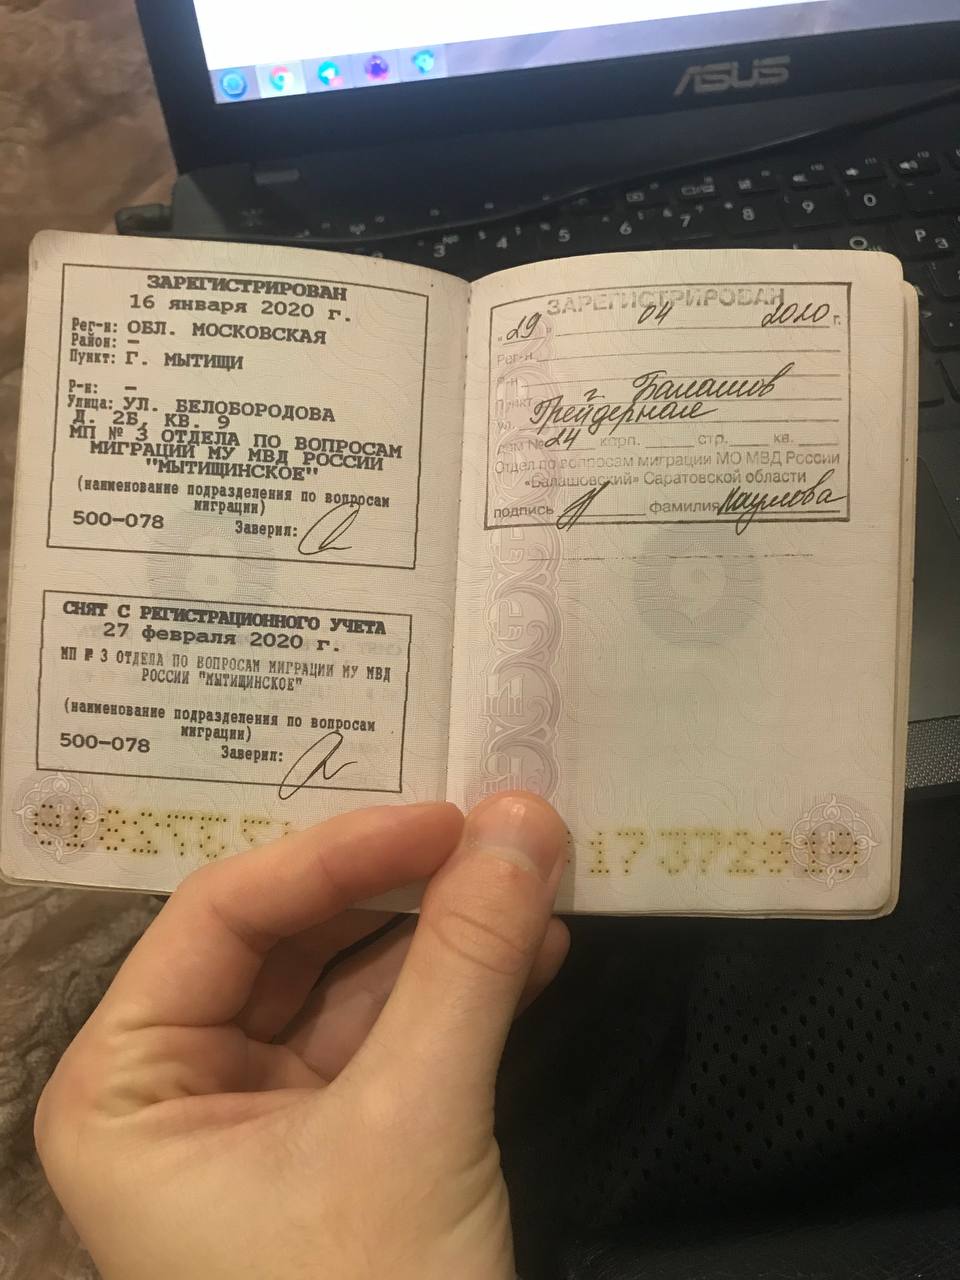 ASUS
3 4 5 6 7 8 9 0
ЗАРЕГИСТРИРОВАН
16 января 2020 г.
Рег-н: ОБЛ. МОСКОВСКАЯ
Район: –
Пункт: Г. МЫТИЩИ
Р-н: –
Улица: УЛ. БЕЛОБОРОДОВА
Д. 2Б, КВ. 9
МП № 3 ОТДЕЛА ПО ВОПРОСАМ
МИГРАЦИИ МУ МВД РОССИИ
"МЫТИЩИНСКОЕ"
(наименование подразделения по вопросам
миграции)
500-078 Заверил:
СНЯТ С РЕГИСТРАЦИОННОГО УЧЕТА
27 февраля 2020 г.
МП № 3 ОТДЕЛА ПО ВОПРОСАМ МИГРАЦИИ МУ МВД
РОССИИ "МЫТИЩИНСКОЕ"
(наименование подразделения по вопросам
миграции)
500-078 Заверил:
ЗАРЕГИСТРИРОВАН
"29" 04 2020 г.
Рег-н
Р-н
Пункт г. Балашов
ул. Грейдерная
дом № 24 корп. стр. кв.
Отдел по вопросам миграции МО МВД России
«Балашовский» Саратовской области
подпись фамилия Наумова